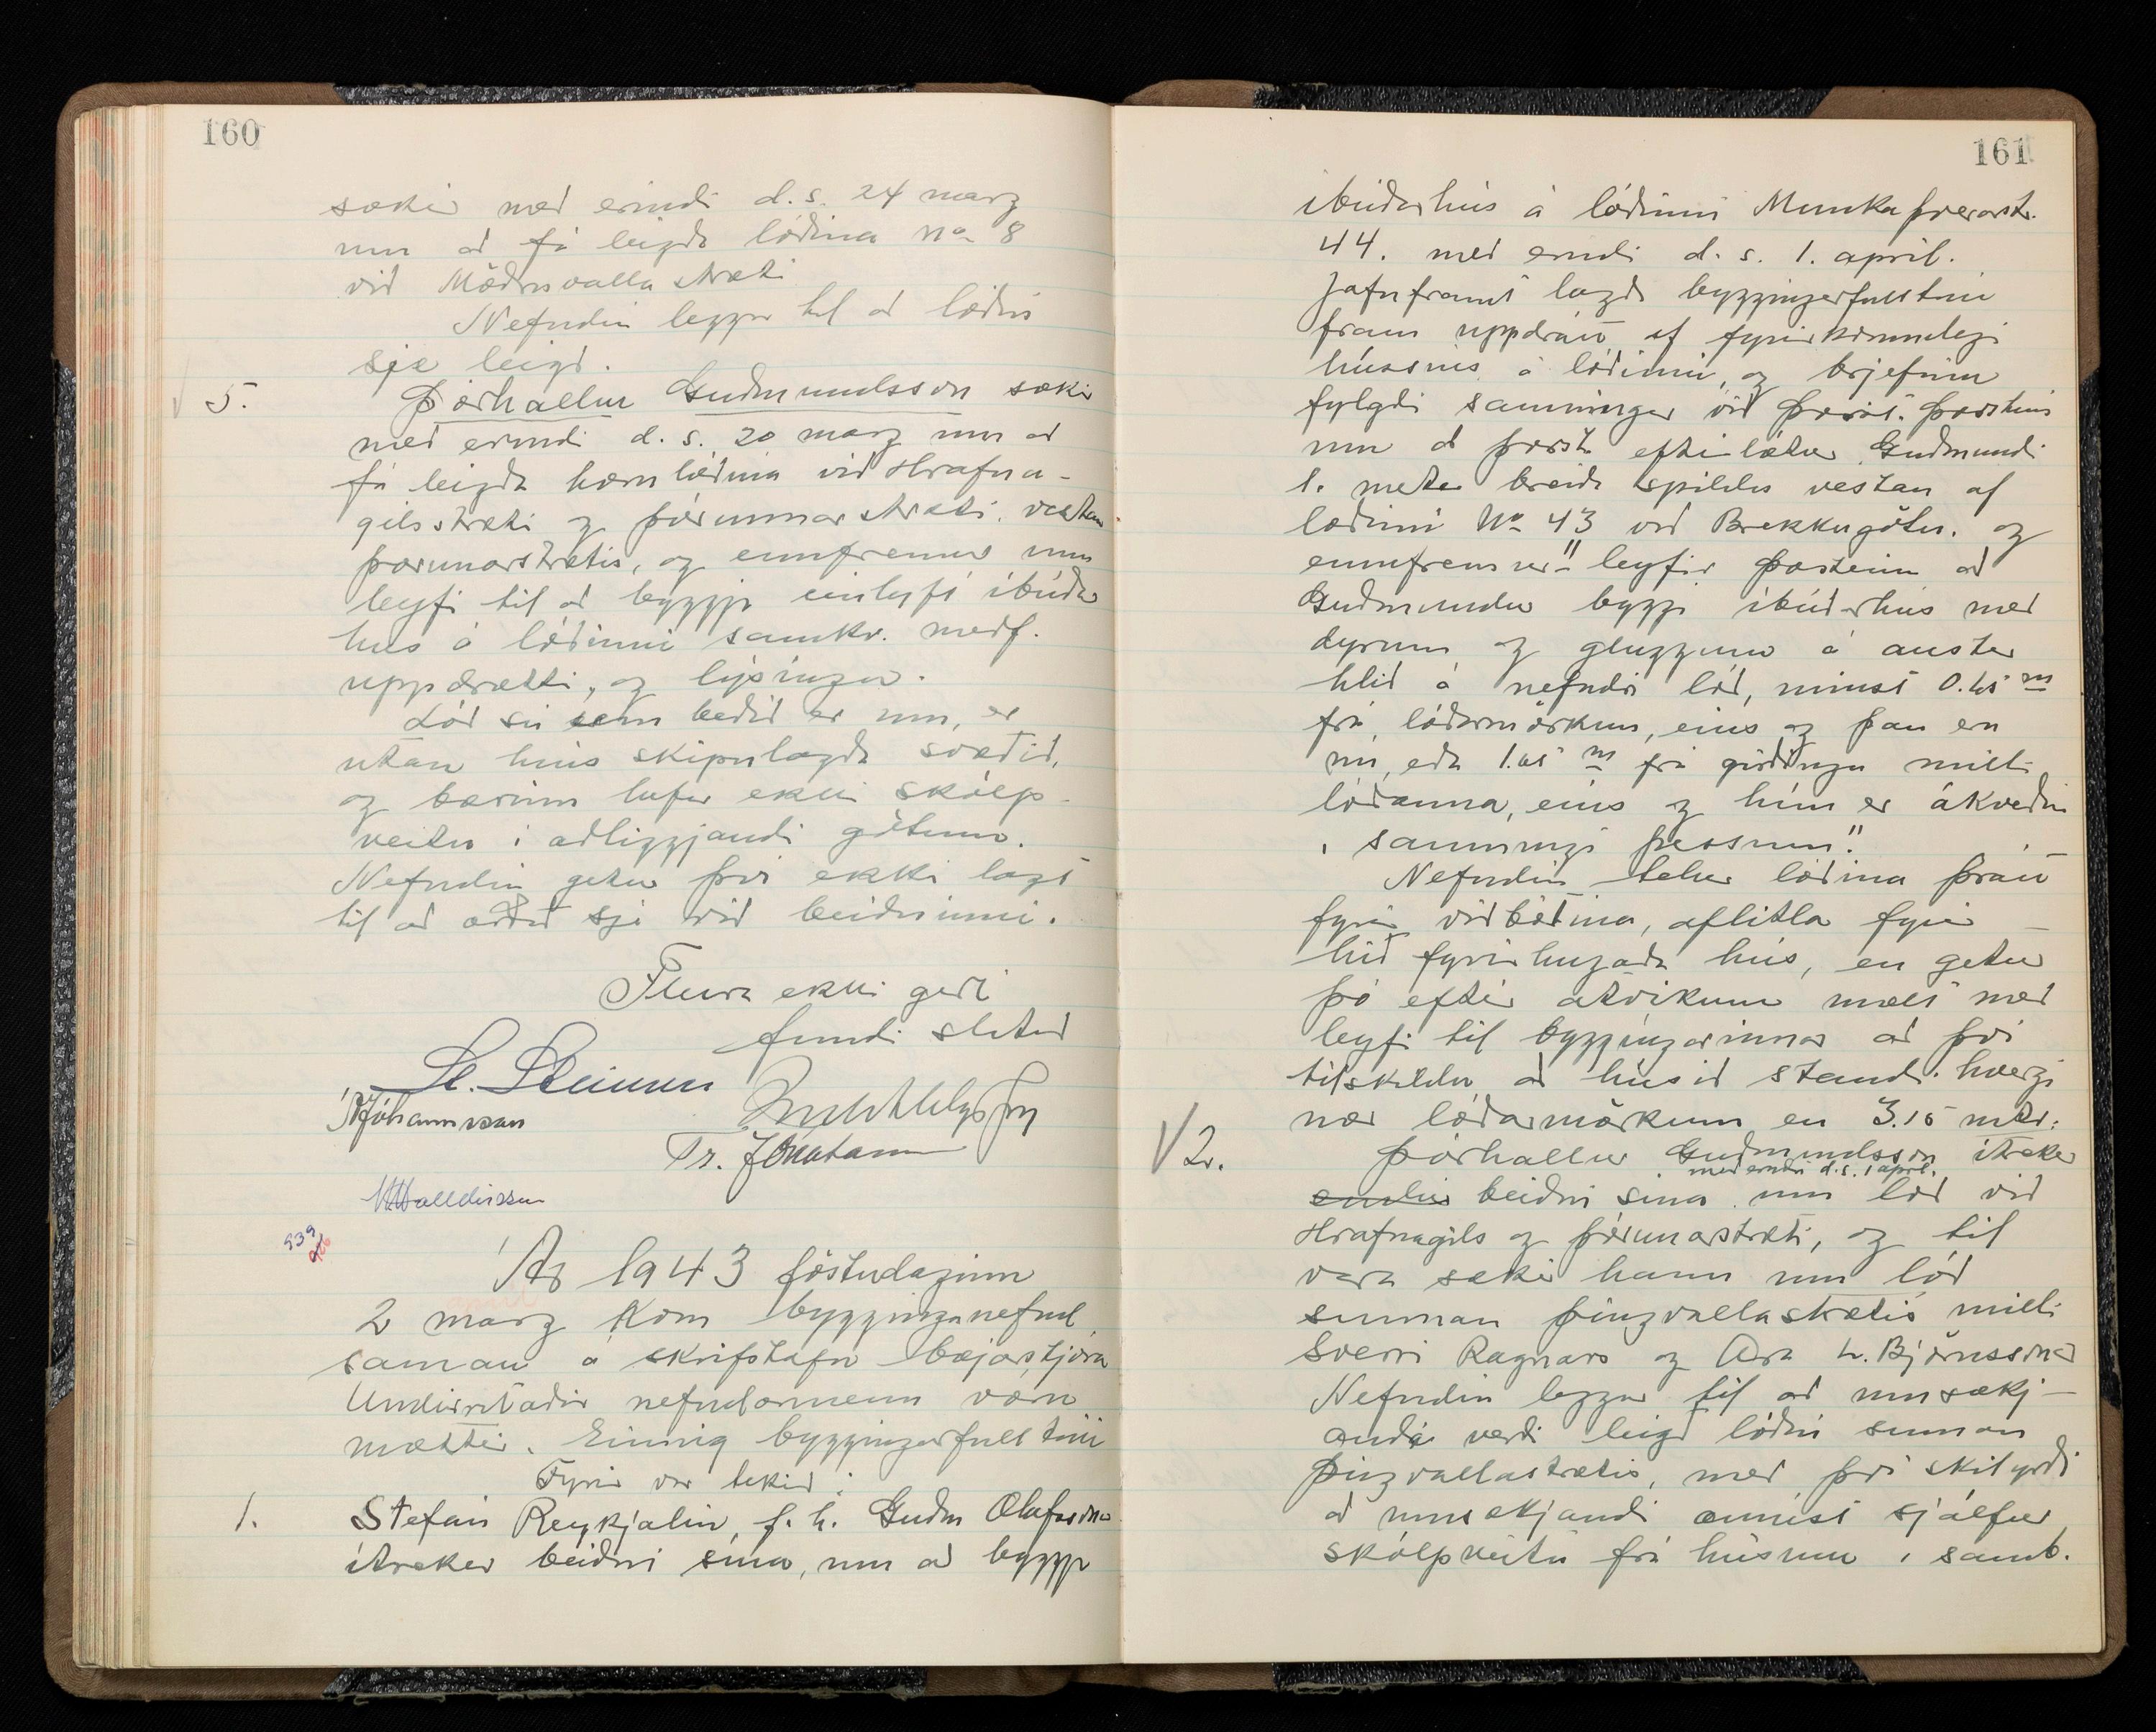 160
sækir með erindi d.s. 24 marz
um að fá leigða lóðina No 8
við Möðruvallastræti
Nefndin leggur til að lóðin
sje leigð.
5. Þórhallur Guðmundsson sækir
með erindi d.s. 20 marz um að
fá leigða hornlóðina við Hrafna-
gilsstræti og Þórunnarstræti. vestan
Þórunarstrætis, og ennfremur um
leyfi til að byggja einlyft íbúðar
hús á lóðinni samkv. meðf.
uppdrætti, og lýsingu.
Lóð sú sem beðið er um, er
utan hins skipulagða svæðis,
og bærinn hefur ekki skólp-
veitu í aðliggjandi götum.
Nefndin getur því ekki lagt
til að orðið sje við beiðninni.
Fleira ekki gert
fundi slitið
St. Steinsen
Jóhannsson
Tr. Jónatansson
H Halldórsson
539
Ár 1943 föstudaginn
2 marz kom bygginganefnd
saman á skrifstofu bæjarstjóra
Undirritaðir nefndarmenn voru
mættir. Einnig byggingarfulltrúi
Fyrir var tekið:
1. Stefán Reykjalín, f.h. Guðm Ólafssonar
ítrekar beiðni sína, um að byggja
161
íbúðarhús á lóðinni Munkaþverárstr.
44. með erindi d.s. 1. apríl.
Jafnframt lagði byggingarfulltrúi
fram uppdrátt af fyrirkomulagi
hússins á lóðinni, og brjefinu
fylgdi samningur við Þorst. Þorsteins
um að Þorst. eftirlætur Guðmundi
1. meter breiða spildu vestan af
lóðinni No 43 við Brekkugötu. og
ennfremur "leyfir Þorsteinn að
Guðmundur byggi íbúðarhús með
dyrum og gluggum á austur
hlið á nefndri lóð, minst 0.65 m
frá lóðarmörkum, eins og þau eru
nú, eða 1.65 m frá girðingu milli
lóðanna, eins og hún er ákveðin
í samningi þessum".
Nefndin telur lóðina þrátt
fyrir viðbótina, aflitla fyrir
hið fyrirhugaða hús, en getur
þó eftir atvikum mælt með
leyfi til byggingarinnar að því
tilskildu að húsið standi hvergi
nær lóðarmörkum en 3.15 mtr.
2. Þórhallur Guðmundsson ítrekar
með erindi d.s. 1 apríl.
beiðni sína um lóð við
Hrafnagils og Þórunarstræti, og til
vara sækir hann um lóð
sunnan Þingvallastrætis milli
Sverri Ragnars og Ara L. Björnssonar
Nefndin leggur til að umsækj-
anda verði leigð lóðin sunnan
Þingvallastrætis, með því skilyrði
að umsækjandi annist sjálfur
skólpveitu frá húsinu í samb.